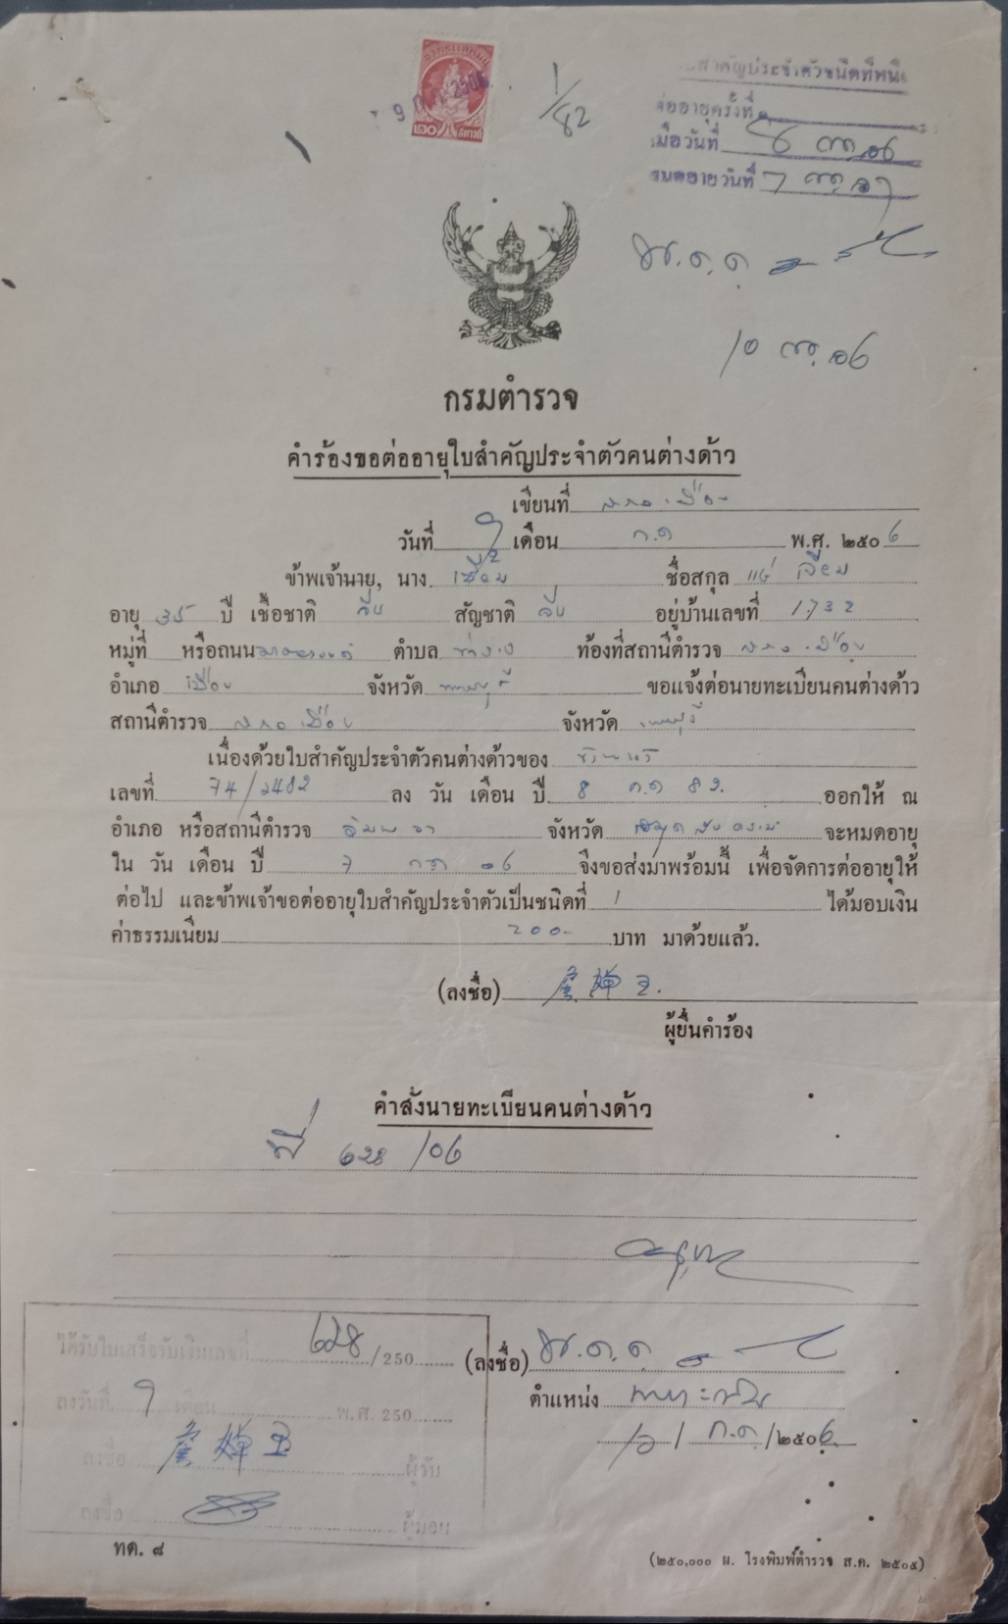 1/82
สำคัญประจำตัวชนิดที่หนึ่ง
ต่ออายุครั้งที่
เมื่อวันที่ 8 ก.ค. 06
หมดอายุวันที่ 7 ก.ค.
10 ก.ค. 06
กรมตำรวจ
คำร้องขอต่ออายุใบสำคัญประจำตัวคนต่างด้าว
เขียนที่ สภอ.เมือง
วันที่ 9 เดือน ก.ค พ.ศ. ๒๕๐6
ข้าพเจ้านาย, นาง ชื่อสกุล แซ่
อายุ 35 ปี เชื้อชาติ จีน สัญชาติ จีน อยู่บ้านเลขที่ 1732
หมู่ที่ หรือถนน ตำบล ท้องที่สถานีตำรวจ สภอ.เมือง
อำเภอ เมือง จังหวัด ขอแจ้งต่อนายทะเบียนคนต่างด้าว
สถานีตำรวจ สภอ เมือง จังหวัด
เนื่องด้วยใบสำคัญประจำตัวคนต่างด้าวของ ข้าพเจ้า
เลขที่ 74/2482 ลง วัน เดือน ปี 8 ก.ค 82 ออกให้ ณ
อำเภอ หรือสถานีตำรวจ อัมพวา จังหวัด สมุทรสงคราม จะหมดอายุ
ใน วัน เดือน ปี 7 ก.ค 06 จึงขอส่งมาพร้อมนี้ เพื่อจัดการต่ออายุให้
ต่อไป และข้าพเจ้าขอต่ออายุใบสำคัญประจำตัวเป็นชนิดที่ 1 ได้มอบเงิน
ค่าธรรมเนียม 200- บาท มาด้วยแล้ว.
(ลงชื่อ)
ผู้ยื่นคำร้อง
คำสั่งนายทะเบียนคนต่างด้าว
ที่ 628/06
ได้รับใบเสร็จรับเงินเลขที่ 628/250
(ลงชื่อ) พ.ต.ต.
ลงวันที่ 9 เดือน พ.ศ. 250
ตำแหน่ง
10/ก.ค/๒๕๐6
ลงชื่อ ผู้รับ
ลงชื่อ ผู้มอบ
ทต. ๘
(๒๕๐,๐๐๐ ผ. โรงพิมพ์ตำรวจ ส.ค. ๒๕๐๕)